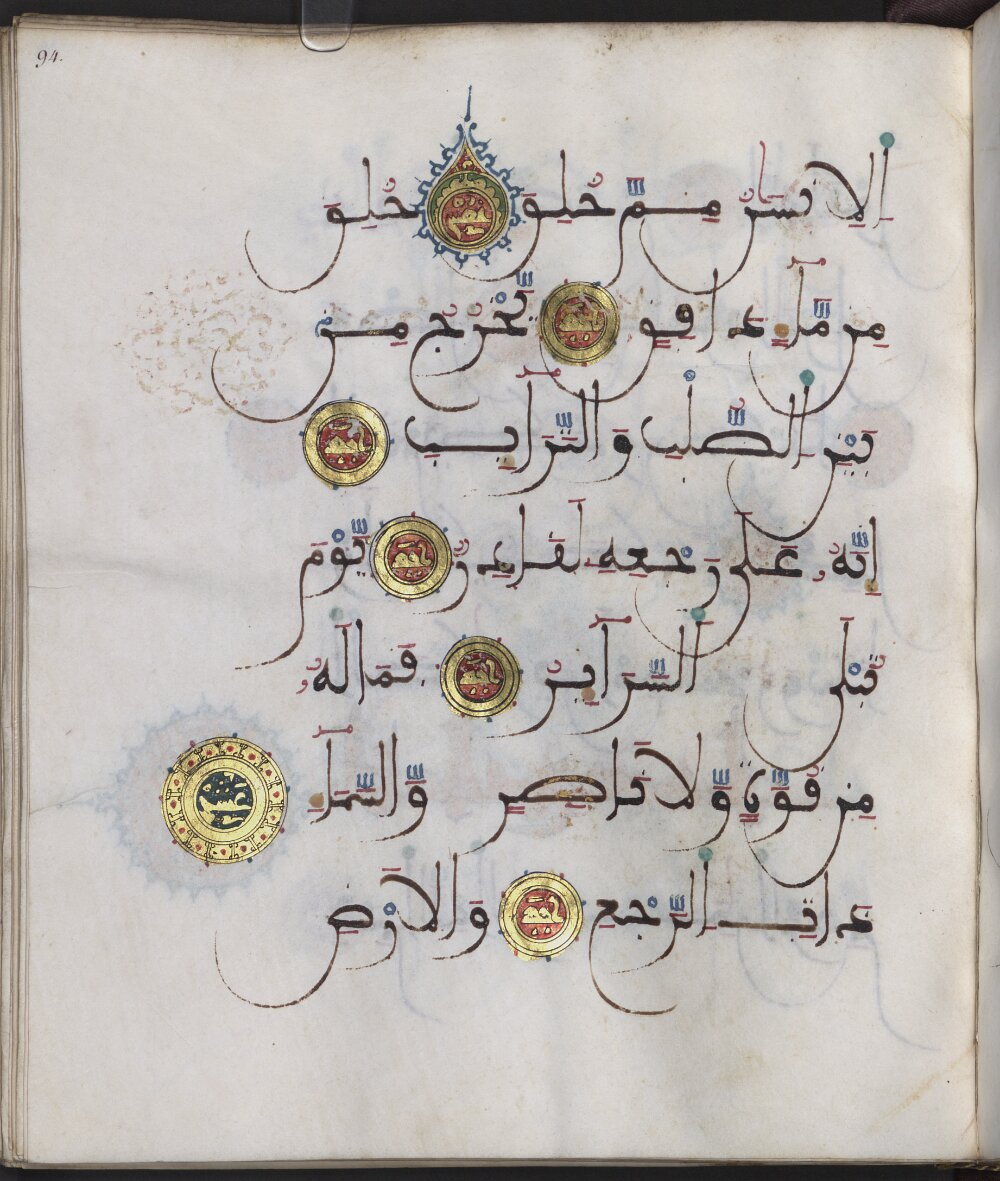 94.
الِانسَٰنُ مِمَّ خُلِقَ خُلِقَ
مِن مَّآءٖ دَافِقٖ يَخْرُجُ مِنۢ
بَيْنِ الصُّلْبِ وَالتَّرَآئِبِ
إِنَّهُۥ عَلَىٰ رَجْعِهِۦ لَقَادِرٞ يَوْمَ
تُبْلَى السَّرَآئِرُ فَمَا لَهُۥ
مِن قُوَّةٖ وَّلَا نَاصِرٖ وَّالسَّمَآءِ
ذَاتِ الرَّجْعِ وَالَارْضِ